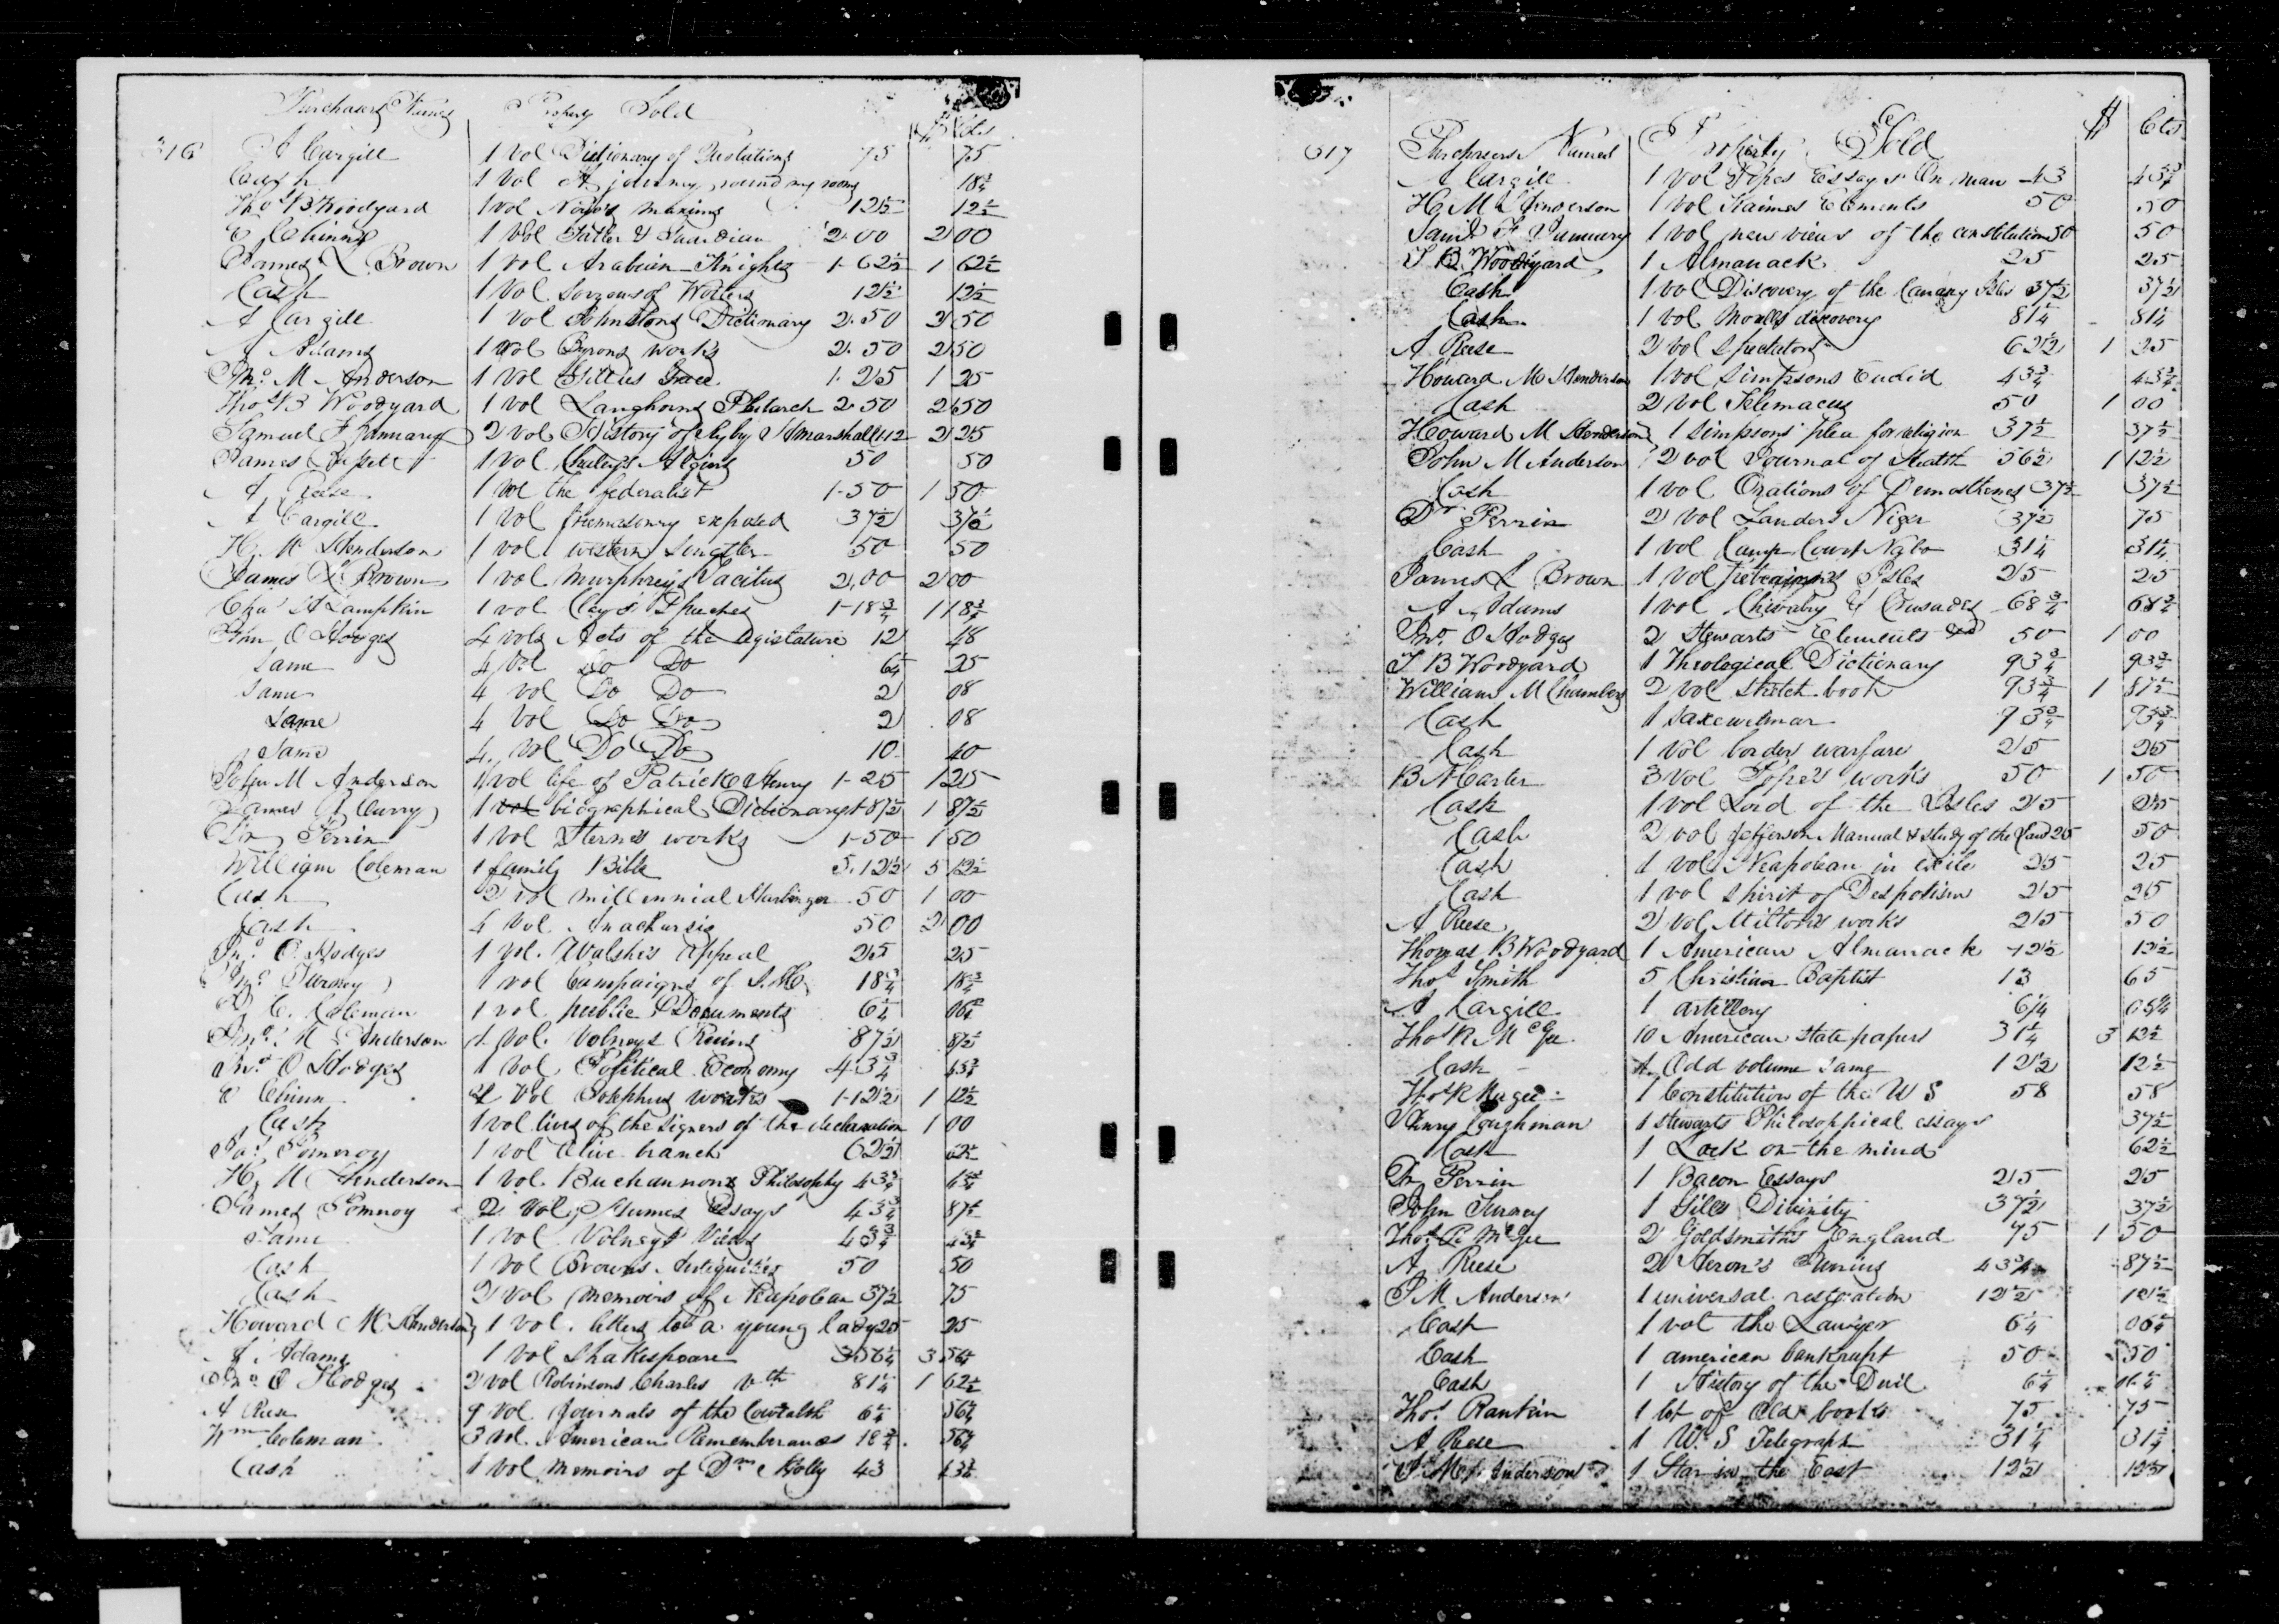 Purchasers Names Property Sold $ Cts
316 A Cargill 1 Vol Dictionary of Quotations 75 75
Cash 1 Vol A journey round my room 18 3/4
Thos B Woodyard 1 vol Nopo's maxims 12 1/2 12 1/2
E Chinn 1 Vol Tatler & Guardian 2.00 2 00
James L Brown 1 Vol Arabian Knights 1-62 1/2 1 62 1/2
Cash 1 Vol Sorrows of Werters 12 1/2 12 1/2
A Cargill 1 Vol Johnstons Dictionary 2.50 2 50
A Adams 1 Vol Byrons works 2.50 2 50
Jno M Anderson 1 Vol Gillies Greece 1.25 1 25
Thos B Woodyard 1 vol Langhorns Plutarch 2.50 2 50
Samuel F January 2 Vol History of Ky by H Marshall 1.12 2 25
James 1 Vol Algiers 50 50
A Reese 1 Vol the federalist 1-50 1 50
A Cargill 1 vol freemasonry exposed 37 1/2 37 1/2
H. M Henderson 1 vol western 50 50
James L Brown 1 vol Murphrey's Tacitus 2.00 2 00
Chas A Lampkin 1 vol Clay's Speeches 1-18 3/4 1 18 3/4
John O Hodges 4 vols Acts of the Legislature 12 48
Same 4 Vol Do Do 6 1/4 25
Same 4 vol Do Do 2 08
Same 4 Vol Do Do 2 08
Same 4 vol Do Do 10 40
John M Anderson 1 vol life of Patrick Henry 1-25 1 25
James A Curry 1 vol biographical Dictionary 1-87 1/2 1 87 1/2
Dr Perrin 1 Vol Sternes works 1-50 1 50
William Coleman 1 family Bible 5.12 1/2 5 12 1/2
Cash 2 vol millennial Harbinger 50 1 00
Cash 4 Vol Anacharsis 50 2 00
Jno O. Hodges 1 Vol. Walsh's Appeal 25 25
Jno Turney 1 vol Campaigns of 18 3/4 18 3/4
C. Coleman 1 vol public Documents 6 1/4 06 1/4
Jno M Anderson 1 vol. Volneys Ruins 87 1/2 87 1/2
Jno O Hodges 1 vol Political Economy 43 3/4 43 3/4
E Chinn 2 Vol Josephus works 1-12 1/2 1 12 1/2
Cash 1 vol lives of the signers of the declaration 1 00
Jas Pomeroy 1 vol Olive branch 62 1/2 62 1/2
H. M Henderson 1 Vol. Buchannons Philosophy 43 3/4 43 3/4
James Pomroy 2 Vol Humes Essays 43 3/4 87 1/2
Same 1 Vol Volneys Views 43 3/4 43 3/4
Cash 1 Vol Browns Antiquities 50 50
Cash 2 vol memoirs of Neapolean 37 1/2 75
Howard M Henderson 1 Vol. letters to a young lady 25 25
A Adams 1 Vol Shakespeare 3 56 1/4 3 56 1/4
Jno O Hodges 2 Vol Robinsons Charles Vth 81 1/4 1 62 1/2
A Reese 9 Vol Journals of the Cowealth 6 1/4 56 1/4
Wm Coleman 3 vol American Rememberances 18 3/4 56 1/4
Cash 1 Vol memoirs of Holly 43 43 3/4
617 Purchasers Names Property Sold $ Cts
A Cargill 1 vol Popes Essays On man 43 43 3/4
H. M Henderson 1 vol Kaimes Elements 50 50
Saml F January 1 Vol new views of the constitution 50 50
T B Woodyard 1 Almanack 25 25
Cash 1 Vol Discovery of the Canary Isles 37 1/2 37 1/2
Cash 1 Vol discovery 81 1/4 81 1/4
A Reese 2 vol Spectator 62 1/2 1 25
Howard M Henderson 1 vol Simpsons Euclid 43 3/4 43 3/4
Cash 2 vol Telemacus 50 1 00
Howard M Henderson 1 Simpsons plea for religion 37 1/2 37 1/2
John M Anderson 2 vol Journal of Heath 56 1/2 1 12 1/2
Cash 1 vol Orations of Demosthenes 37 1/2 37 1/2
Dr Perrin 2 vol Landers Niger 37 1/2 75
Cash 1 Vol Camp 31 1/4 31 1/4
James L Brown 1 Vol Isles 25 25
A Adams 1 vol Chivalry & Crusades 68 3/4 68 3/4
Jno O Hodges 2 Stewarts Elements 50 1 00
T B Woodyard 1 Theological Dictionary 93 3/4 93 3/4
William M Chambers 2 vol Sketch book 93 3/4 1 87 1/2
Cash 1 93 3/4 93 3/4
Cash 1 Vol border warfare 25 25
B Marter 3 Vol Pope's works 50 1 50
Cash 1 vol Lord of the Isles 25 25
Cash 2 vol Jefferson Manual & study of the Law 25 50
Cash 1 vol Neapolean in exile 25 25
Cash 1 vol Spirit of Despotism 25 25
A Reese 2 vol Miltons works 25 50
Thomas B Woodyard 1 American Almanack 12 1/2 12 1/2
Thos Smith 5 Christian Baptist 13 65
A Cargill 1 artillery 6 1/4 06 1/4
Thos R McGee 10 American State papers 31 1/4 3 12 1/2
Cash 1 Odd volume same 12 1/2 12 1/2
Thos R Magee 1 Constitution of the U S 58 58
Henry Coughman 1 Stewarts Philosophical essays 37 1/2
Cash 1 Lock on the mind 62 1/2
Dr Perrin 1 Bacon Essays 25 25
John Turney 1 Gills Divinity 37 1/2 37 1/2
Thos R McGee 2 Goldsmiths England 75 1 50
A Reese 2 Heron's Junius 43 3/4 87 1/2
J M Anderson 1 universal restoration 12 1/2 12 1/2
Cash 1 vol the Lawyer 6 1/4 06 1/4
Cash 1 american bankrupt 50 50
Cash 1 History of the Devil 6 1/4 06 1/4
Thos Rankin 1 lot of Old books 75 75
A Reese 1 U. S Telegraph 31 1/4 31 1/4
J M Anderson 1 Star in the East 12 1/2 12 1/2